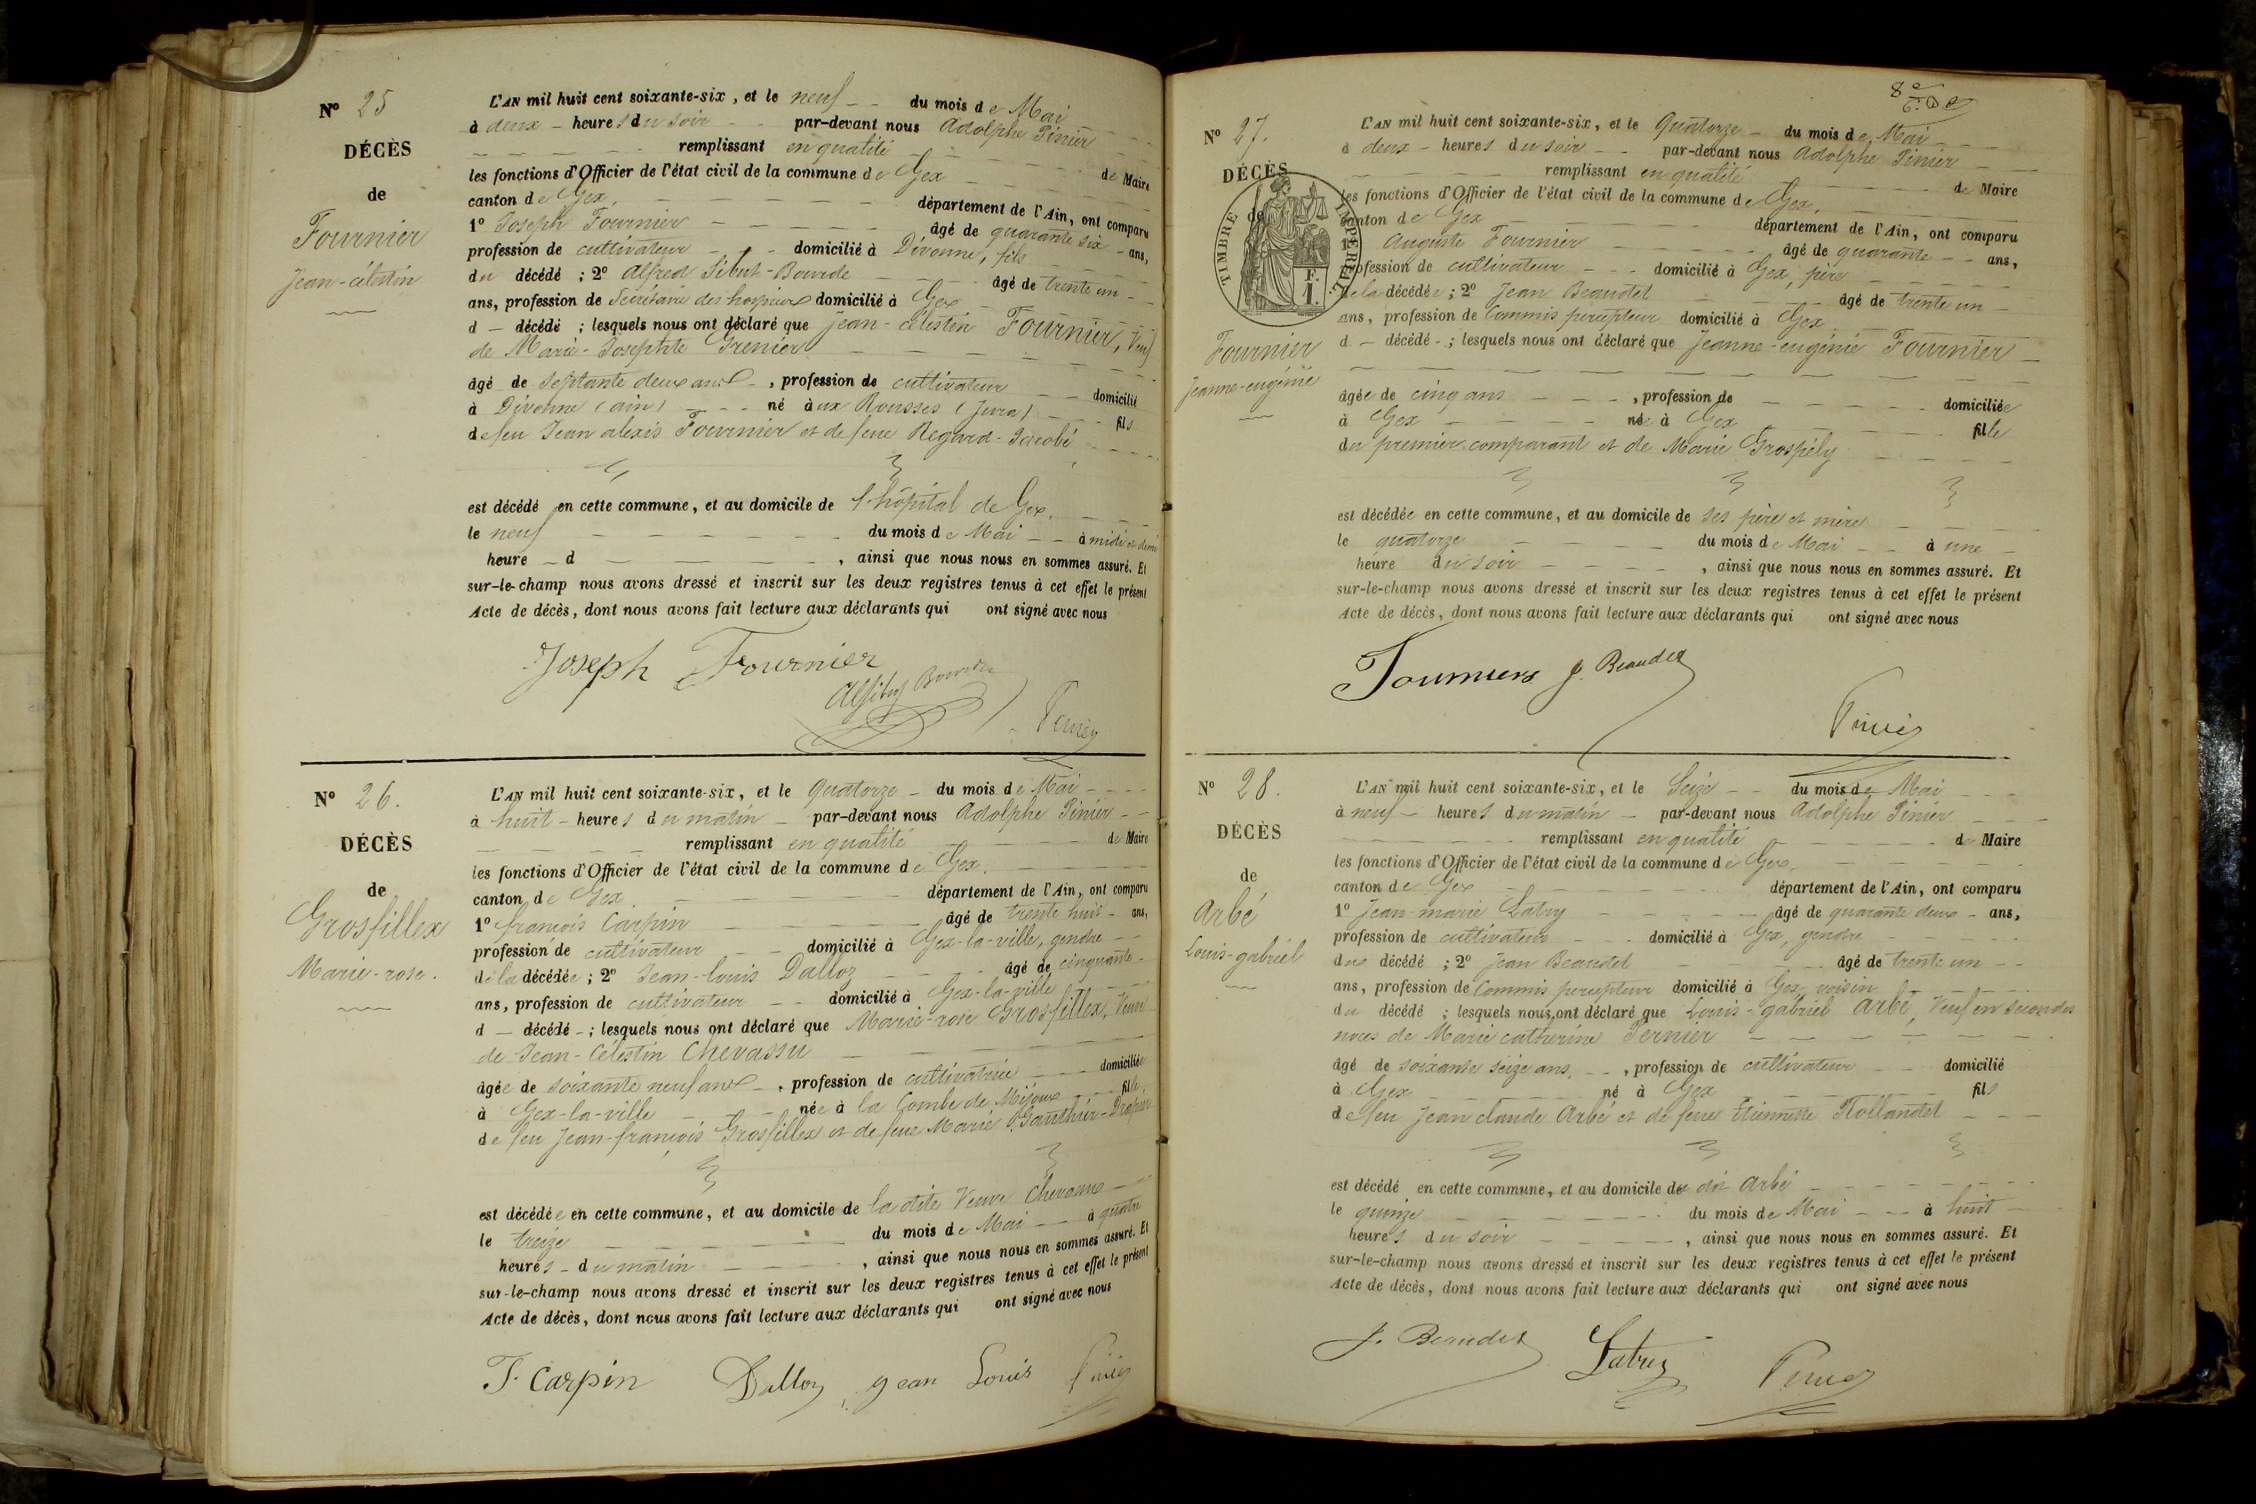 Nº 25
DÉCÈS
de
Fournier
Jean-célestin
L'AN mil huit cent soixante-six, et le neuf du mois de Mai
à deux heures du soir par-devant nous Adolphe Pinier
remplissant en qualité de Maire
les fonctions d'Officier de l'état civil de la commune de Gex
canton de Gex, département de l'Ain, ont comparu
1º Joseph Fournier âgé de quarante six ans,
profession de cultivateur domicilié à Divonne, fils
du décédé ; 2º Alfred Sibut-Bourde âgé de trente un
ans, profession de Secrétaire des hospices domicilié à Gex
d décédé ; lesquels nous ont déclaré que Jean-célestin Fournier, Veuf
de Marie-Josephte Grenier
âgé de septante deux ans, profession de cultivateur domicilié
à Divonne (ain) né aux Rousses (Jura) fils
de feu Jean alexis Fournier et de feue Regard-Jacobé
est décédé en cette commune, et au domicile de l'hôpital de Gex.
le neuf du mois de Mai à midi et demi
heure d , ainsi que nous nous en sommes assuré. Et
sur-le-champ nous avons dressé et inscrit sur les deux registres tenus à cet effet le présent
Acte de décès, dont nous avons fait lecture aux déclarants qui ont signé avec nous
Joseph Fournier
Bourde
Pinier
Nº 26.
DÉCÈS
de
Grosfillex
Marie-rose.
L'AN mil huit cent soixante-six, et le Quatorze du mois de Mai
à huit heures du matin par-devant nous Adolphe Pinier
remplissant en qualité de Maire
les fonctions d'Officier de l'état civil de la commune de Gex.
canton de Gex département de l'Ain, ont comparu
1º françois Carpin âgé de trente huit ans,
profession de cultivateur domicilié à Gex-la-ville, gendre
de la décédée ; 2º Jean-louis Dalloz âgé de cinquante
ans, profession de cultivateur domicilié à Gex-la-ville
d décédé ; lesquels nous ont déclaré que Marie-rose Grosfillex, Veuve
de Jean-Célestin Chevassu
âgée de soixante neuf ans, profession de cultivatrice domiciliée
à Gex-la-ville née à la Combe de Mijoux fille
de feu Jean-françois Grosfillex et de feue Marie J. Gauthier-
est décédée en cette commune, et au domicile de la dite Veuve Chevassu
le treize du mois de Mai à quatre
heures du matin , ainsi que nous nous en sommes assuré. Et
sur-le-champ nous avons dressé et inscrit sur les deux registres tenus à cet effet le présent
Acte de décès, dont nous avons fait lecture aux déclarants qui ont signé avec nous
F. Carpin Dalloz jean Louis Pinier
Nº 27.
DÉCÈS
de
TIMBRE IMPÉRIAL
F.
1.
Fournier
Jeanne-eugénie
L'AN mil huit cent soixante-six, et le Quatorze du mois de Mai
à deux heures du soir par-devant nous Adolphe Pinier
remplissant en qualité de Maire
les fonctions d'Officier de l'état civil de la commune de Gex,
canton de Gex département de l'Ain, ont comparu
1º Auguste Fournier âgé de quarante ans,
profession de cultivateur domicilié à Gex, père
de la décédée ; 2º Jean Beaudet âgé de trente un
ans, profession de Commis percepteur domicilié à Gex
d décédé ; lesquels nous ont déclaré que Jeanne-eugénie Fournier
âgée de cinq ans , profession de domiciliée
à Gex née à Gex fille
du premier comparant et de Marie Grospély
est décédée en cette commune, et au domicile de ses père et mère
le quatorze du mois de Mai à une
heure du soir , ainsi que nous nous en sommes assuré. Et
sur-le-champ nous avons dressé et inscrit sur les deux registres tenus à cet effet le présent
Acte de décès, dont nous avons fait lecture aux déclarants qui ont signé avec nous
Fourniers J. Beaudet
Pinier
Nº 28.
DÉCÈS
de
Arbé
Louis-gabriel
L'AN mil huit cent soixante-six, et le Seize du mois de Mai
à neuf heures du matin par-devant nous Adolphe Pinier
remplissant en qualité de Maire
les fonctions d'Officier de l'état civil de la commune de Gex.
canton de Gex département de l'Ain, ont comparu
1º Jean-marie Latry âgé de quarante deux ans,
profession de cultivateur domicilié à Gex, gendre
du décédé ; 2º Jean Beaudet âgé de trente un
ans, profession de Commis percepteur domicilié à Gex, voisin
du décédé ; lesquels nous ont déclaré que Louis-gabriel Arbé, Veuf en secondes
noces de Marie catherine Pernier
âgé de soixante seize ans, profession de cultivateur domicilié
à Gex né à Gex fils
de feu Jean claude Arbé et de feue Etiennette Rollandet
est décédé en cette commune, et au domicile du dit Arbé
le quinze du mois de Mai à huit
heures du soir , ainsi que nous nous en sommes assuré. Et
sur-le-champ nous avons dressé et inscrit sur les deux registres tenus à cet effet le présent
Acte de décès, dont nous avons fait lecture aux déclarants qui ont signé avec nous
J. Beaudet Latry Pinier